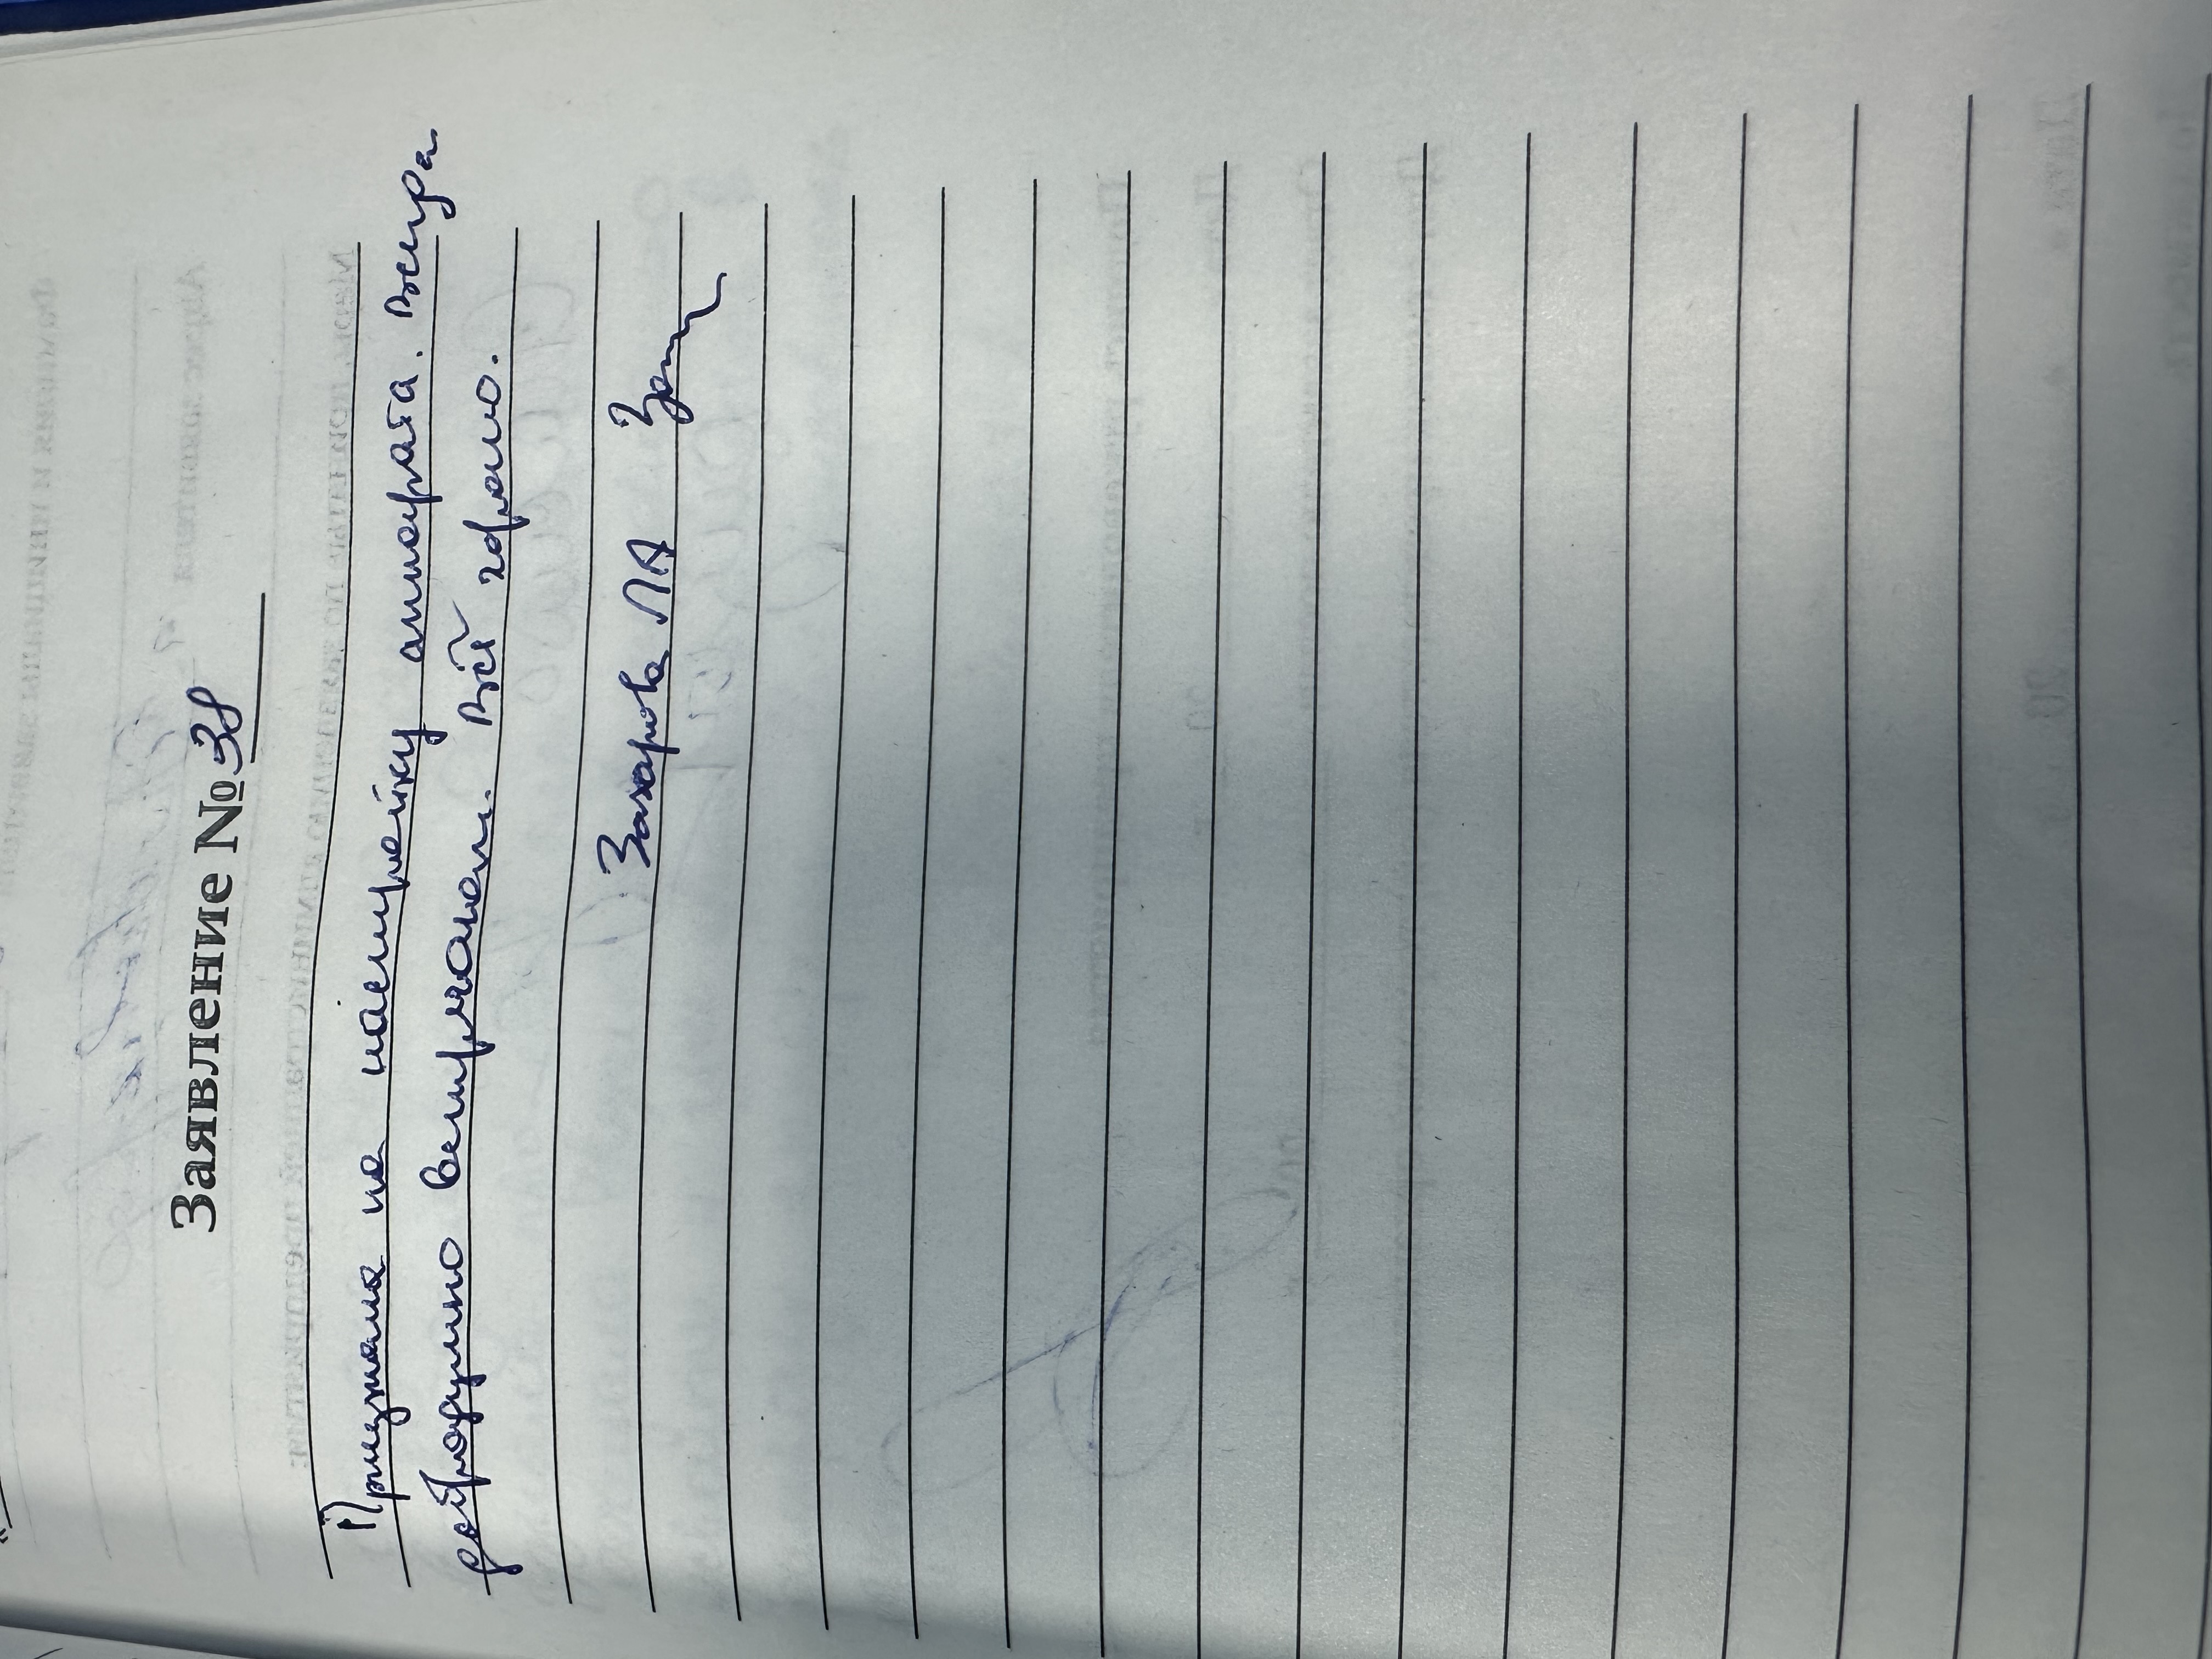 Заявление № 38
Приезжала на настройку аппарата. Всегда
доброжелательно встречают. Всё хорошо.
Захарова ЛА